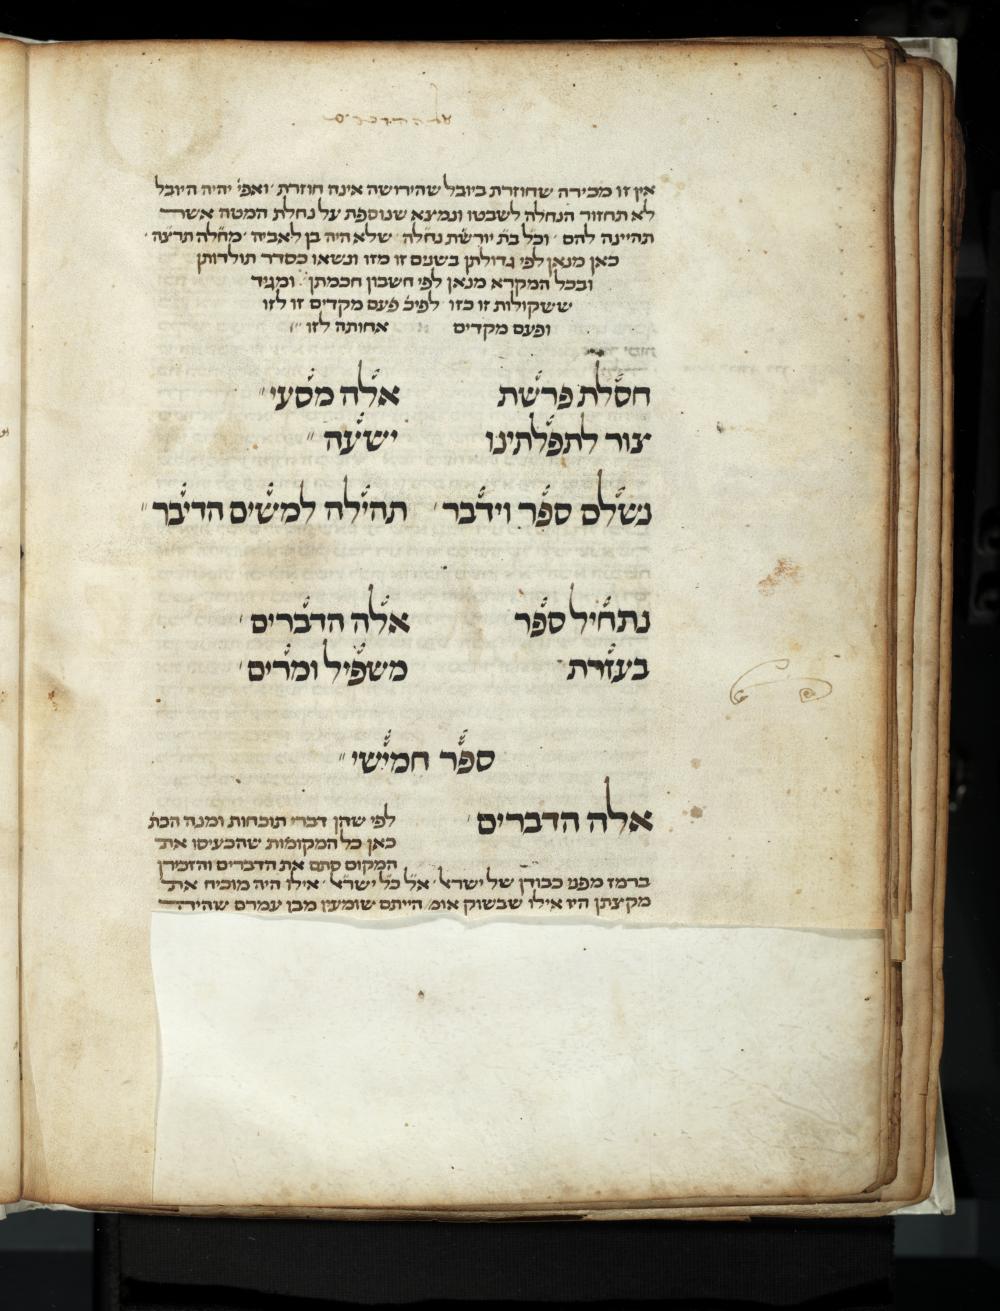 אלה הדברים
אין זו מכירה שחוזרת ביובל שהירושה אינה חוזרת ואפי' יהיה היובל
לא תחזור הנחלה לשבטו ונמצא שנוספת על נחלת המטה אשר
תהיינה להם וכל בת יורשת נחלה שלא היה בן לאביה מחלה תרצה
כאן מנאן לפי גדולתן בשנים זו מזו ונשאו כסדר תולדותן
ובכל המקרא מנאן לפי חשבון חכמתן ומגיד
ששקולות זו כזו לפיכ' פעם מקדים זו לזו
ופעם מקדים אחותה לזו
חסלת פרשת אלה מסעי
צור לתפלתינו ישעה
נשלם ספר וידבר תהילה למשים הדיבר
נתחיל ספר אלה הדברים
בעזרת משפיל ומרים
ספר חמישי
אלה הדברים לפי שהן דברי תוכחות ומנה הכת'
כאן כל המקומות שהכעיסו את
המקום סתם את הדברים והזכירן
ברמז מפני כבודן של ישראל אל כל ישראל אילו היה מוכיח את
מקצתן היו אילו שבשוק אומ' הייתם שומעין מבן עמרם